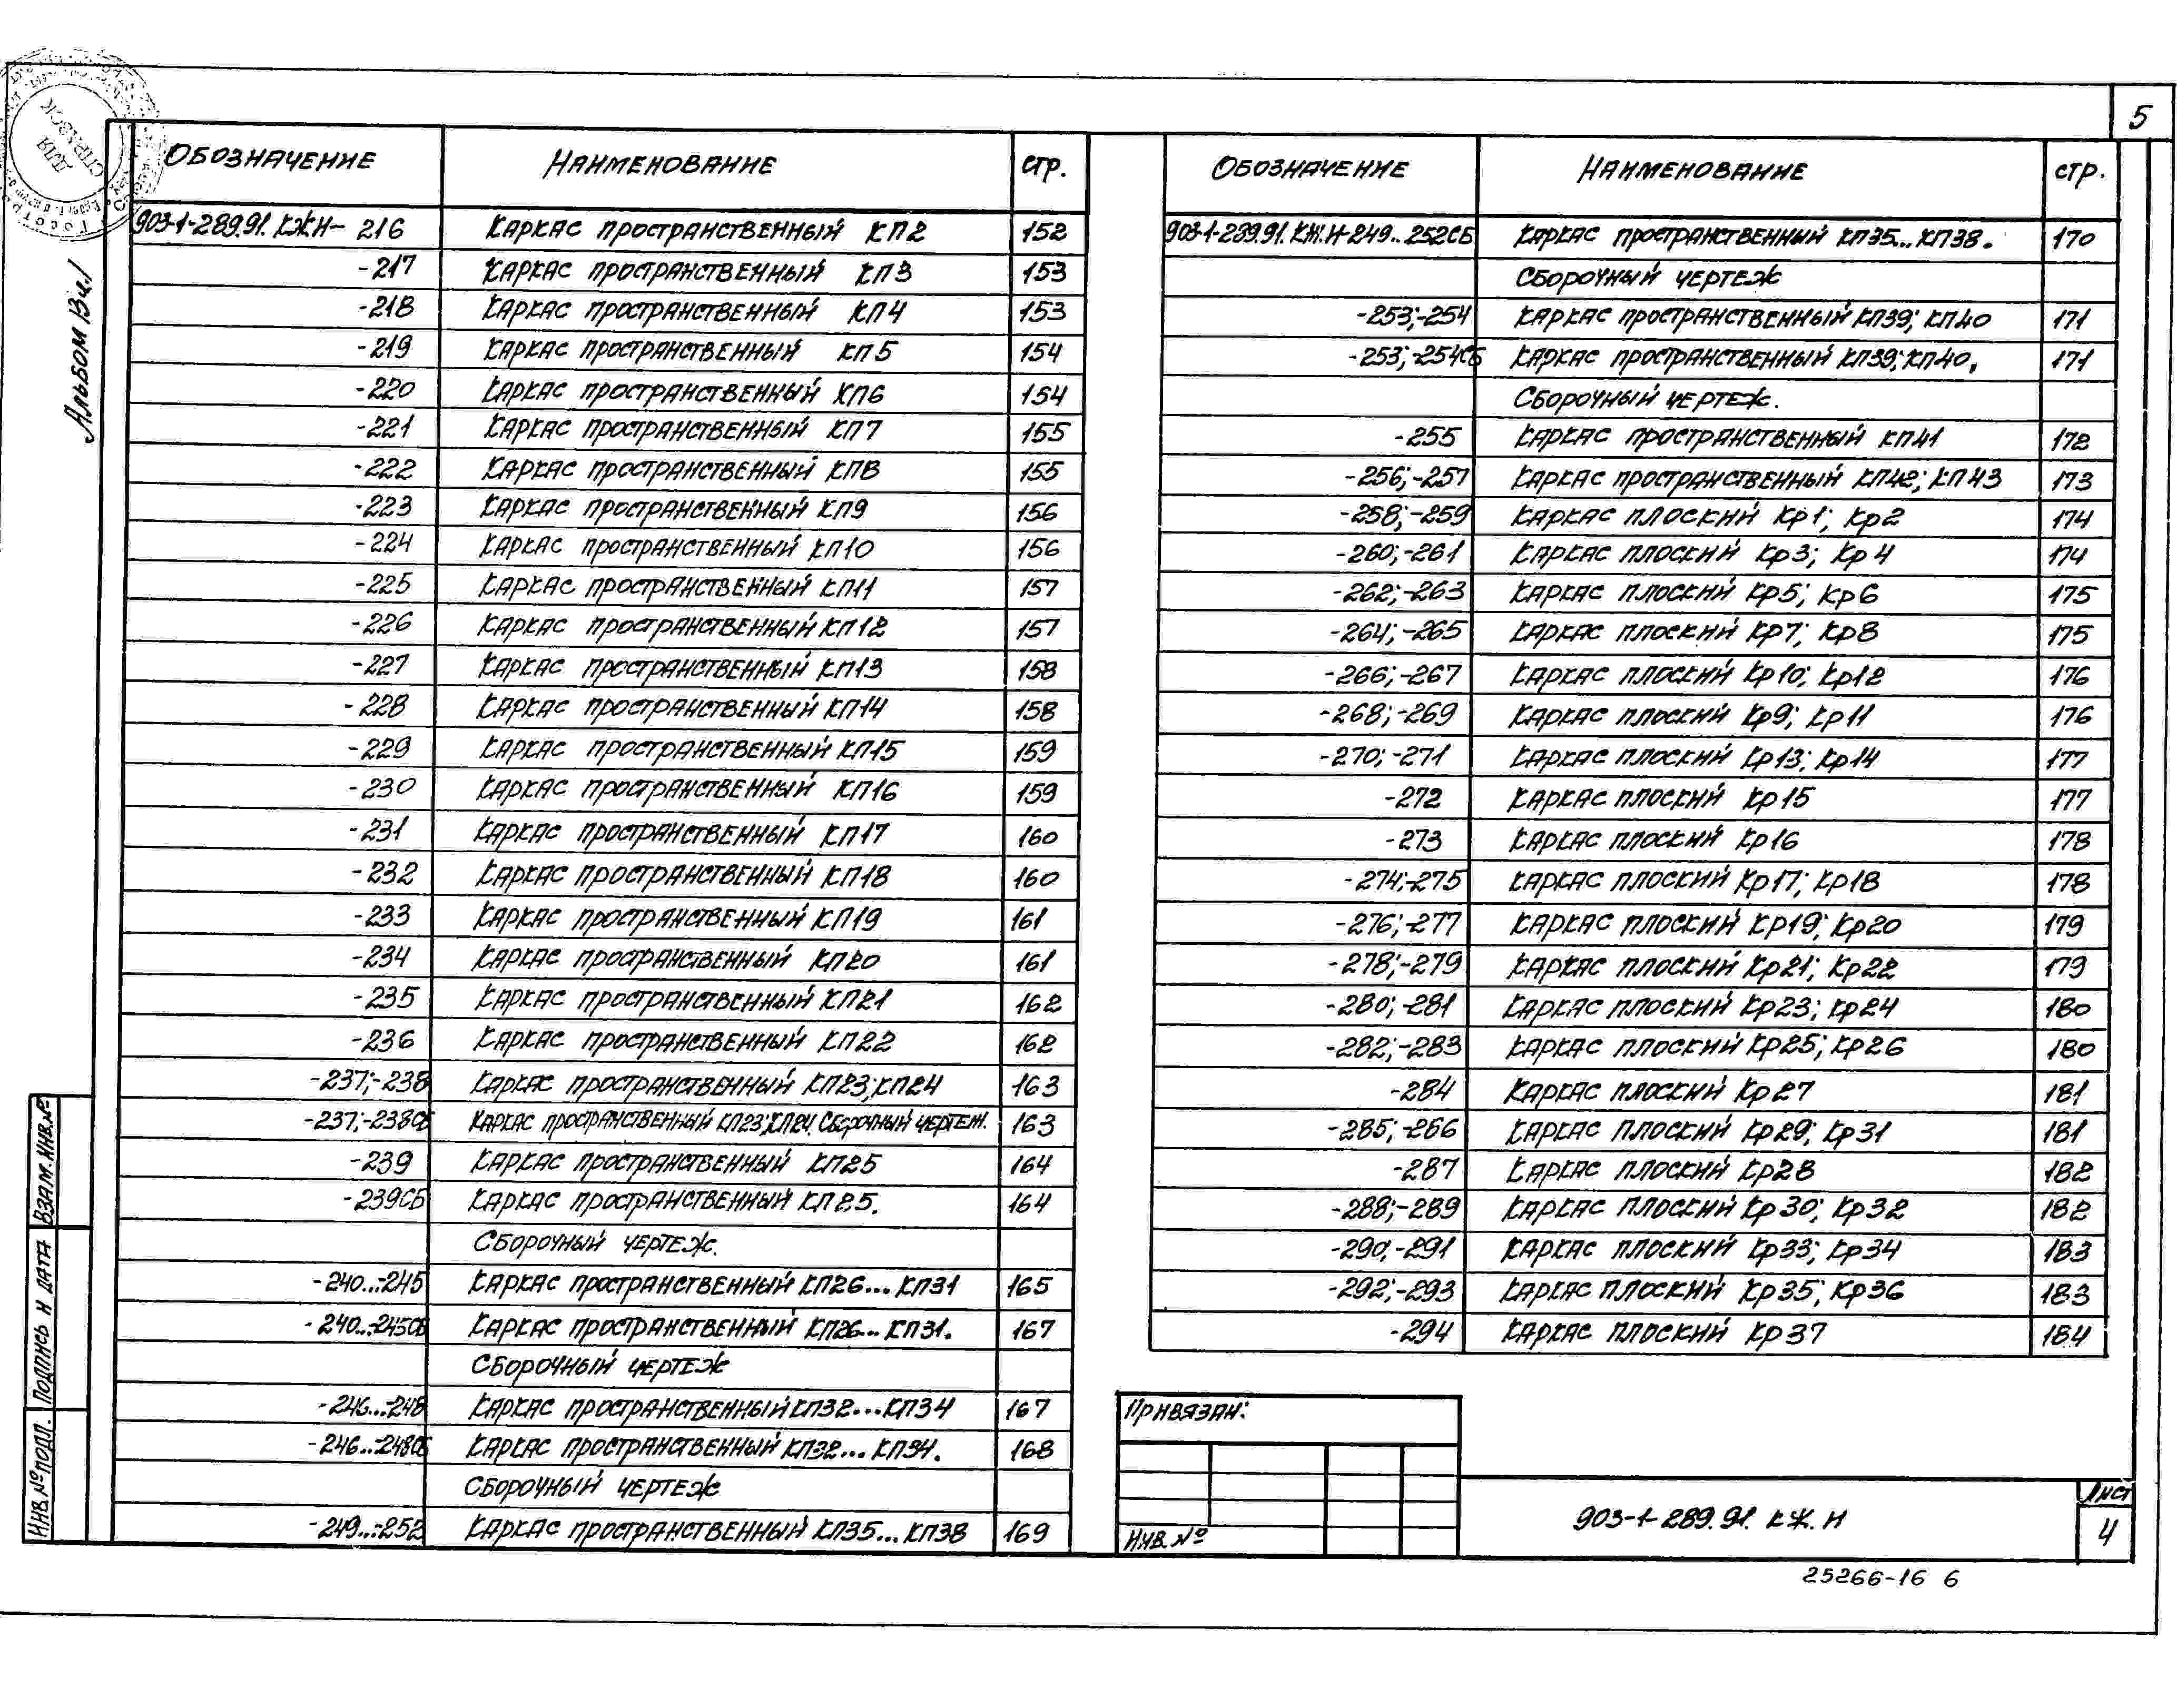 5
Альбом 13 ч.1
ДЛЯ
СПРАВОК
ОБОЗНАЧЕНИЕ НАИМЕНОВАНИЕ СТР.
903-1-289.91. КЖ.Н- 216 КАРКАС ПРОСТРАНСТВЕННЫЙ КП2 152
-217 КАРКАС ПРОСТРАНСТВЕННЫЙ КП3 153
-218 КАРКАС ПРОСТРАНСТВЕННЫЙ КП4 153
-219 КАРКАС ПРОСТРАНСТВЕННЫЙ КП5 154
-220 КАРКАС ПРОСТРАНСТВЕННЫЙ КП6 154
-221 КАРКАС ПРОСТРАНСТВЕННЫЙ КП7 155
-222 КАРКАС ПРОСТРАНСТВЕННЫЙ КП8 155
-223 КАРКАС ПРОСТРАНСТВЕННЫЙ КП9 156
-224 КАРКАС ПРОСТРАНСТВЕННЫЙ КП10 156
-225 КАРКАС ПРОСТРАНСТВЕННЫЙ КП11 157
-226 КАРКАС ПРОСТРАНСТВЕННЫЙ КП12 157
-227 КАРКАС ПРОСТРАНСТВЕННЫЙ КП13 158
-228 КАРКАС ПРОСТРАНСТВЕННЫЙ КП14 158
-229 КАРКАС ПРОСТРАНСТВЕННЫЙ КП15 159
-230 КАРКАС ПРОСТРАНСТВЕННЫЙ КП16 159
-231 КАРКАС ПРОСТРАНСТВЕННЫЙ КП17 160
-232 КАРКАС ПРОСТРАНСТВЕННЫЙ КП18 160
-233 КАРКАС ПРОСТРАНСТВЕННЫЙ КП19 161
-234 КАРКАС ПРОСТРАНСТВЕННЫЙ КП20 161
-235 КАРКАС ПРОСТРАНСТВЕННЫЙ КП21 162
-236 КАРКАС ПРОСТРАНСТВЕННЫЙ КП22 162
-237;-238 КАРКАС ПРОСТРАНСТВЕННЫЙ КП23;КП24 163
-237;-238СБ КАРКАС ПРОСТРАНСТВЕННЫЙ КП23;КП24. СБОРОЧНЫЙ ЧЕРТЕЖ. 163
-239 КАРКАС ПРОСТРАНСТВЕННЫЙ КП25 164
-239СБ КАРКАС ПРОСТРАНСТВЕННЫЙ КП25. 164
СБОРОЧНЫЙ ЧЕРТЕЖ.
-240...-245 КАРКАС ПРОСТРАНСТВЕННЫЙ КП26...КП31 165
-240...-245СБ КАРКАС ПРОСТРАНСТВЕННЫЙ КП26...КП31. 167
СБОРОЧНЫЙ ЧЕРТЕЖ
-246...-248 КАРКАС ПРОСТРАНСТВЕННЫЙ КП32...КП34 167
-246...-248СБ КАРКАС ПРОСТРАНСТВЕННЫЙ КП32...КП34. 168
СБОРОЧНЫЙ ЧЕРТЕЖ
-249...-252 КАРКАС ПРОСТРАНСТВЕННЫЙ КП35...КП38 169
ОБОЗНАЧЕНИЕ НАИМЕНОВАНИЕ СТР.
903-1-289.91. КЖ.Н-249...252СБ КАРКАС ПРОСТРАНСТВЕННЫЙ КП35...КП38. 170
СБОРОЧНЫЙ ЧЕРТЕЖ
-253;-254 КАРКАС ПРОСТРАНСТВЕННЫЙ КП39; КП40 171
-253;-254СБ КАРКАС ПРОСТРАНСТВЕННЫЙ КП39;КП40. 171
СБОРОЧНЫЙ ЧЕРТЕЖ.
-255 КАРКАС ПРОСТРАНСТВЕННЫЙ КП41 172
-256;-257 КАРКАС ПРОСТРАНСТВЕННЫЙ КП42; КП43 173
-258;-259 КАРКАС ПЛОСКИЙ Кр1; Кр2 174
-260;-261 КАРКАС ПЛОСКИЙ Кр3; Кр4 174
-262;-263 КАРКАС ПЛОСКИЙ Кр5; Кр6 175
-264;-265 КАРКАС ПЛОСКИЙ Кр7; Кр8 175
-266;-267 КАРКАС ПЛОСКИЙ Кр10; Кр12 176
-268;-269 КАРКАС ПЛОСКИЙ Кр9; Кр11 176
-270;-271 КАРКАС ПЛОСКИЙ Кр13; Кр14 177
-272 КАРКАС ПЛОСКИЙ Кр15 177
-273 КАРКАС ПЛОСКИЙ Кр16 178
-274;-275 КАРКАС ПЛОСКИЙ Кр17; Кр18 178
-276;-277 КАРКАС ПЛОСКИЙ Кр19; Кр20 179
-278;-279 КАРКАС ПЛОСКИЙ Кр21; Кр22 179
-280;-281 КАРКАС ПЛОСКИЙ Кр23; Кр24 180
-282;-283 КАРКАС ПЛОСКИЙ Кр25; Кр26 180
-284 КАРКАС ПЛОСКИЙ Кр27 181
-285;-266 КАРКАС ПЛОСКИЙ Кр29; Кр31 181
-287 КАРКАС ПЛОСКИЙ Кр28 182
-288;-289 КАРКАС ПЛОСКИЙ Кр30; Кр32 182
-290;-291 КАРКАС ПЛОСКИЙ Кр33; Кр34 183
-292;-293 КАРКАС ПЛОСКИЙ Кр35; Кр36 183
-294 КАРКАС ПЛОСКИЙ Кр37 184
ПРИВЯЗАН:
ИНВ.№
903-1-289.91. КЖ.Н
Лист
4
25266-16 6
ИНВ.№ПОДЛ. ПОДПИСЬ И ДАТА ВЗАМ.ИНВ.№